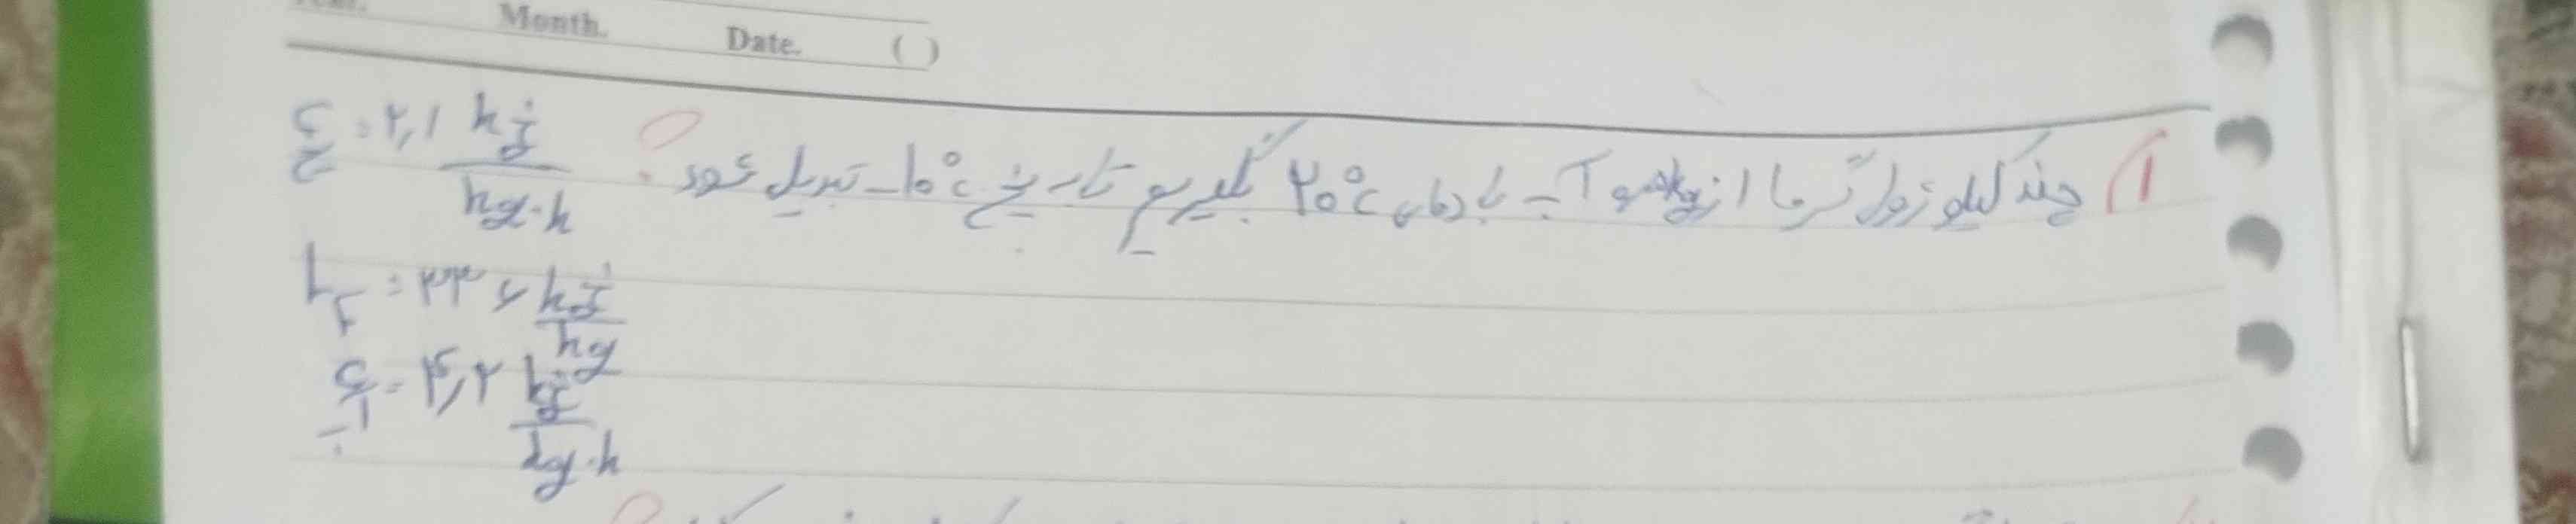 Month. Date. ( )
۱) چند کیلو ژول گرما از آب با دمای ۲۰°c بگیریم تا به یخ ۱۰°c- تبدیل شود؟
c یخ = ۲,۱ kj/kg.k
L_F = ۳۳۶ kj/kg
c آب = ۴,۲ kj/kg.k